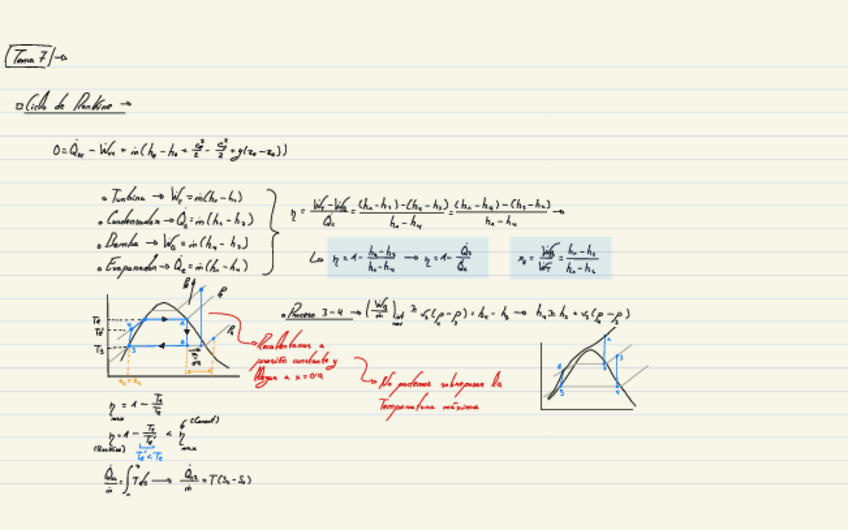 Tema 7 →
Ciclo de Rankine →
0 = Q̇ - Ẇ + ṁ(h - h + c²/2 - c²/2 + g(z - z))
• Turbina → Ẇ_T = ṁ(h₁-h₂)
• Condensador → Q̇_s = ṁ(h₂-h₃)
• Bomba → Ẇ_B = ṁ(h₄-h₃)
• Evaporador → Q̇_e = ṁ(h₁-h₄)
η = (Ẇ_T-Ẇ_B)/Q̇_e = ((h₁-h₂)-(h₄-h₃))/(h₁-h₄) = ((h₁-h₄)-(h₂-h₃))/(h₁-h₄) →
↳ η = 1 - (h₂-h₃)/(h₁-h₄) → η = 1 - Q̇_s/Q̇_e
= Ẇ_B/Ẇ_T = (h₄-h₃)/(h₁-h₂)
• Proceso 3-4 → (Ẇ_B/ṁ) ≅ v₃(p₄-p₃) = h₄-h₃ → h₄ ≅ h₃+v₃(p₄-p₃)
Te
Te'
Ts
Recalentamos a
presión constante y
llegar a x=0,9
No podemos sobrepasar la
Temperatura máxima
η max = 1 - Ts/Te
η (Rankine) = 1 - Ts/Te' < η max (Carnot)
Te' < Te
Q̇/ṁ = ∫ T ds → Q̇/ṁ = T(S - S)